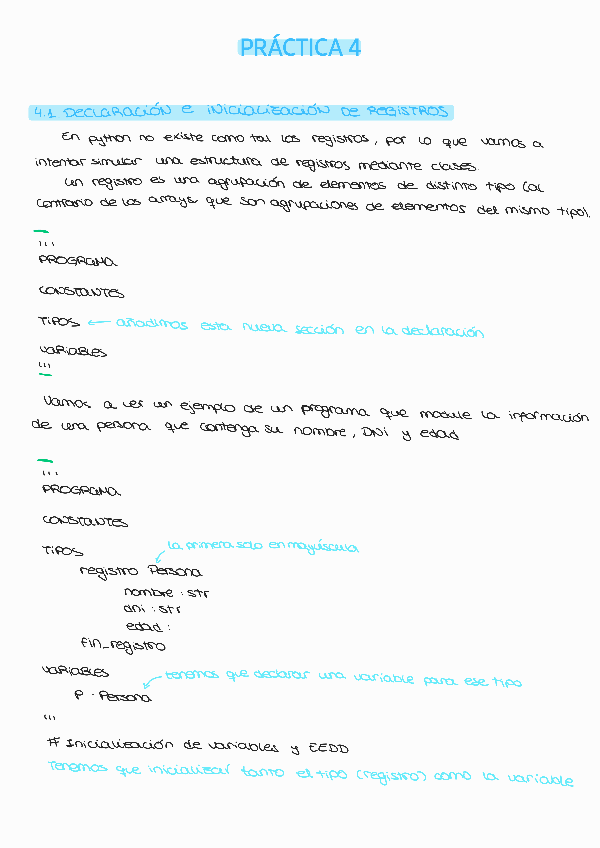 PRÁCTICA 4
4.1 DECLARACIÓN E INICIALIZACIÓN DE REGISTROS
En python no existe como tal los registros, por lo que vamos a
intentar simular una estructura de registros mediante clases.
Un registro es una agrupación de elementos de distinto tipo (al
contrario de los arrays que son agrupaciones de elementos del mismo tipo).
'''
PROGRAMA
CONSTANTES
TIPOS ← añadimos esta nueva sección en la declaración
VARIABLES
'''
Vamos a ver un ejemplo de un programa que module la información
de una persona que contenga su nombre, DNI y edad
'''
PROGRAMA
CONSTANTES
TIPOS
la primera solo en mayúscula
registro Persona
nombre : str
dni : str
edad :
fin_registro
VARIABLES
tenemos que declarar una variable para ese tipo
P : Persona
'''
# Inicialización de variables y EEDD
Tenemos que inicializar tanto el tipo (registro) como la variable